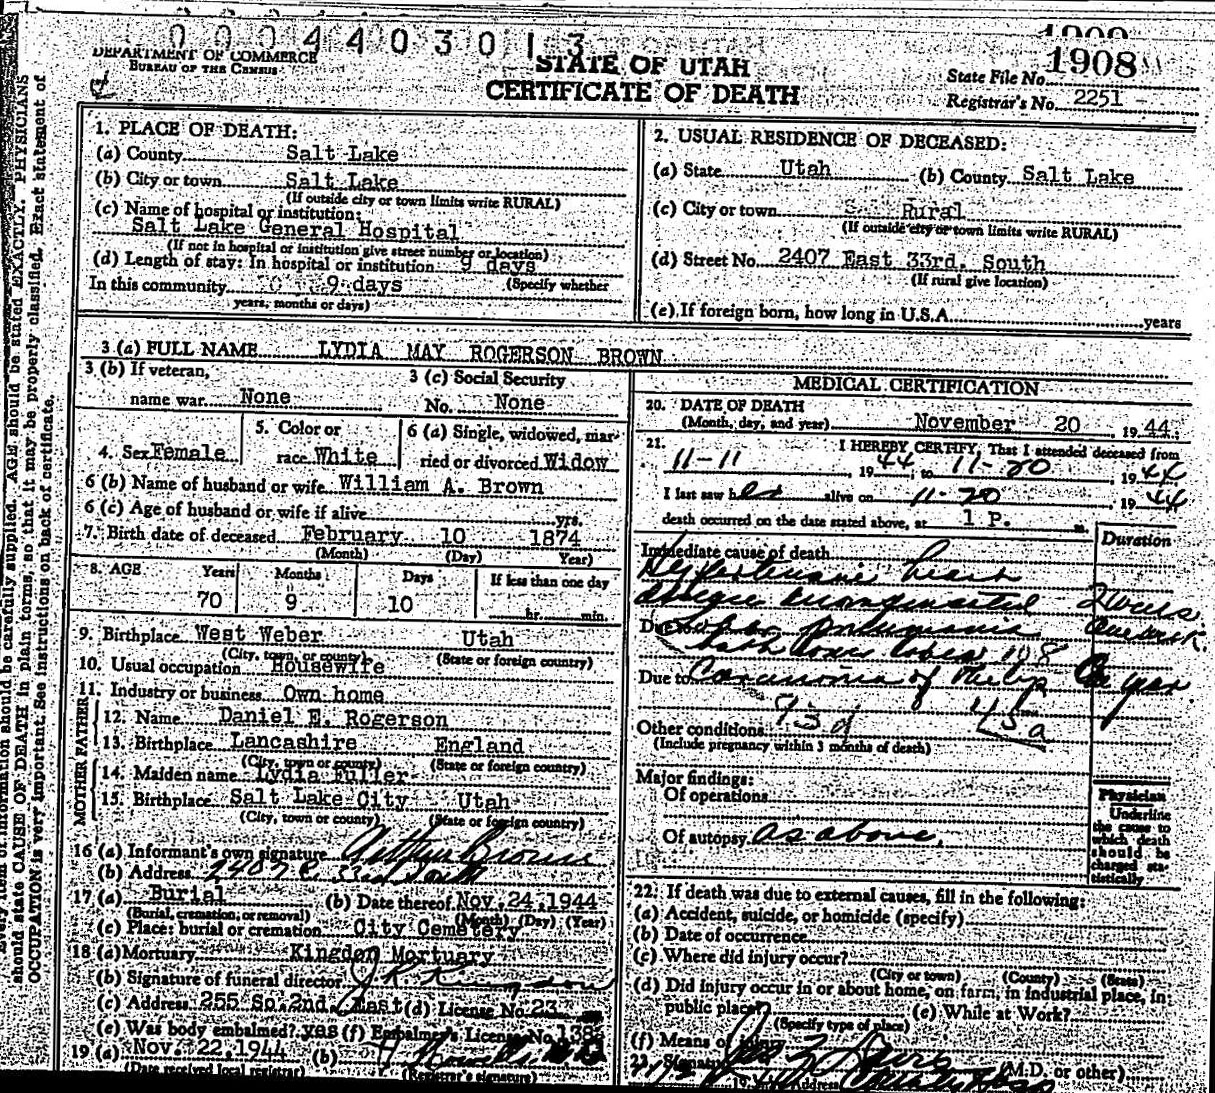 00044030 13
DEPARTMENT OF COMMERCE
BUREAU OF THE CENSUS
STATE OF UTAH
CERTIFICATE OF DEATH
State File No. 1908
Registrar's No. 2251
1. PLACE OF DEATH:
(a) County Salt Lake
(b) City or town Salt Lake
(If outside city or town limits write RURAL)
(c) Name of hospital or institution:
Salt Lake General Hospital
(If not in hospital or institution give street number or location)
(d) Length of stay: In hospital or institution 9 days
In this community 9 days (Specify whether
years, months or days)
2. USUAL RESIDENCE OF DECEASED:
(a) State Utah (b) County Salt Lake
(c) City or town Rural
(If outside city or town limits write RURAL)
(d) Street No. 2407 East 33rd. South
(If rural give location)
(e) If foreign born, how long in U.S.A. years
3 (a) FULL NAME LYDIA MAY ROGERSON BROWN
3 (b) If veteran, 3 (c) Social Security
name war. None No. None
4. Sex Female
5. Color or
race White
6 (a) Single, widowed, mar-
ried or divorced Widow
6 (b) Name of husband or wife William A. Brown
6 (c) Age of husband or wife if alive yrs.
7. Birth date of deceased February 10 1874
(Month) (Day) Year)
8. AGE Years Months Days If less than one day
70 9 10 hr. min.
9. Birthplace West Weber Utah
(City, town, or county) (State or foreign country)
10. Usual occupation Housewife
11. Industry or business Own home
FATHER
12. Name Daniel E. Rogerson
13. Birthplace Lancashire England
(City, town or county) (State or foreign country)
MOTHER
14. Maiden name Lydia Fuller
15. Birthplace Salt Lake City Utah
(City, town or county) (State or foreign country)
16 (a) Informant's own signature Arthur Brown
(b) Address 2407 E 33rd South
17 (a) Burial (b) Date thereof Nov. 24, 1944
(Burial, cremation, or removal) (Month) (Day) (Year)
(c) Place: burial or cremation City Cemetery
18 (a) Mortuary Kingdon Mortuary
(b) Signature of funeral director J. K. Kingdon
(c) Address 255 So. 2nd. East (d) License No. 23
(e) Was body embalmed? yes (f) Embalmer's License No. 138
19 (a) Nov. 22, 1944 (b)
(Date received local registrar) (Registrar's signature)
MEDICAL CERTIFICATION
20. DATE OF DEATH
(Month, day, and year) November 20, 1944
21. I HEREBY CERTIFY, That I attended deceased from
11-11, 1944, to 11-20, 1944
I last saw her alive on 11-20, 1944
death occurred on the date stated above, at 1 P. m.
Duration
Immediate cause of death
Hypertensive heart
disease decompensated 2 weeks
Due to Lobar pneumonia One week.
both lower lobes 108
Due to Carcinoma of One year
93d 45a
Other conditions
(Include pregnancy within 3 months of death)
Major findings:
Of operations
Of autopsy as above.
Physician
Underline
the cause to
which death
should be
charged sta-
tistically
22. If death was due to external causes, fill in the following:
(a) Accident, suicide, or homicide (specify)
(b) Date of occurrence
(c) Where did injury occur?
(City or town) (County) (State)
(d) Did injury occur in or about home, on farm, in industrial place, in
public place? (e) While at Work?
(Specify type of place)
(f) Means of injury
23. Signature (M.D. or other)
Address
should state CAUSE OF DEATH in plain terms, so that it may be properly classified. Exact statement of
OCCUPATION is very important. See instructions on back of certificate.
information should be carefully supplied. AGE should be stated EXACTLY. PHYSICIANS